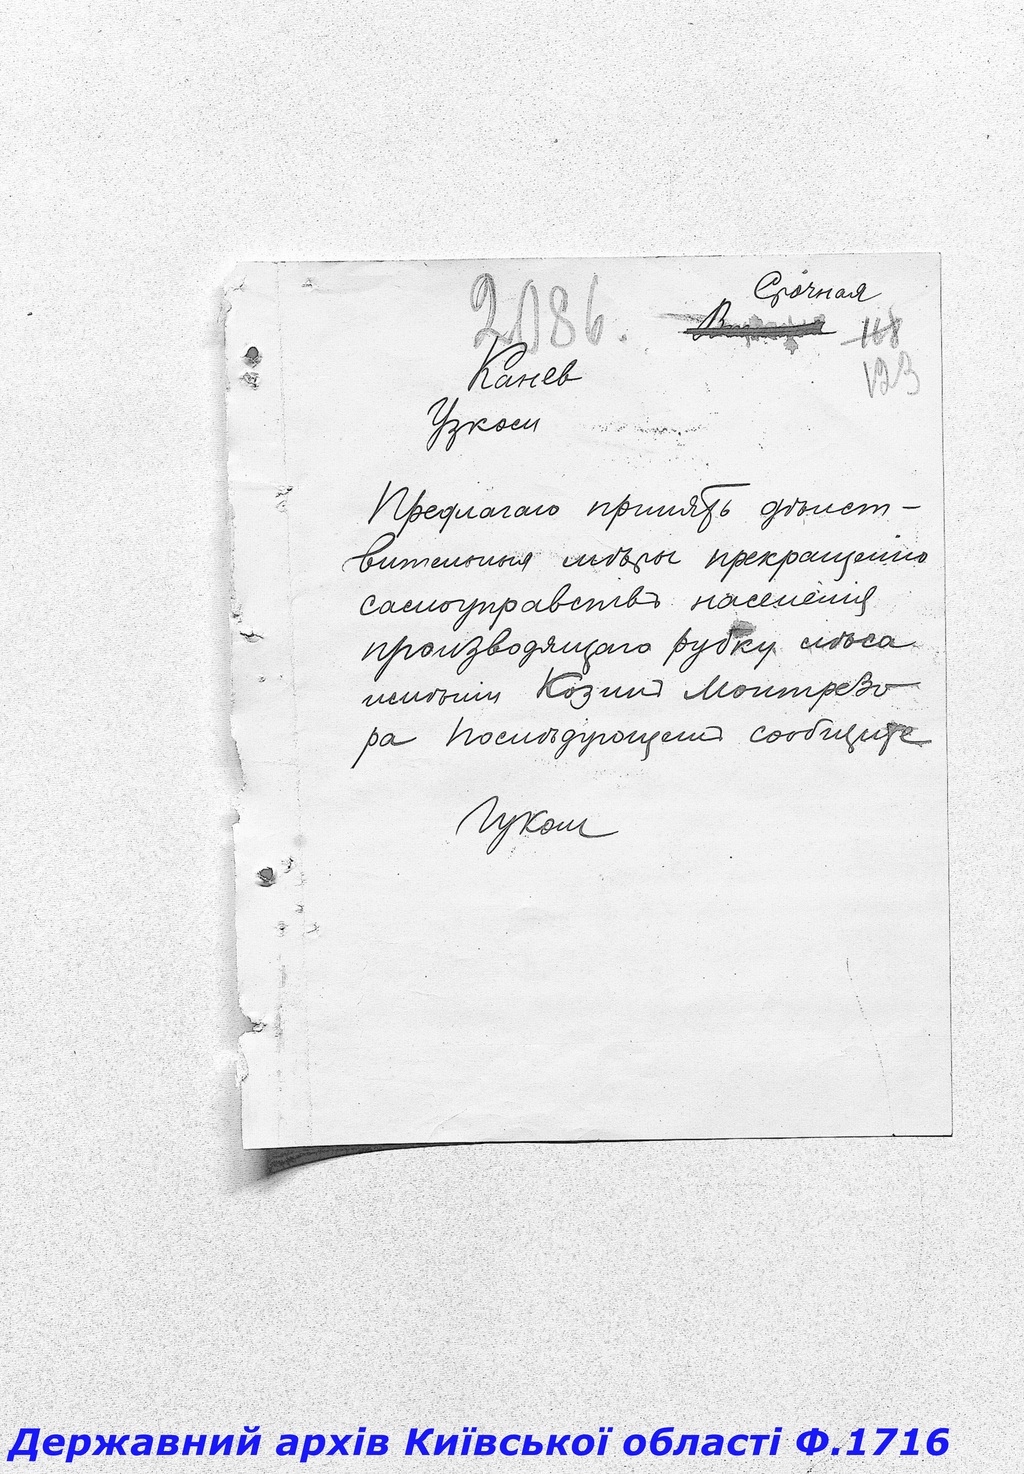 Срочная
2086.
118
123
Канев
Узком
Предлагаю принять дѣйст-
вительныя мѣры прекращенію
самоуправствъ населенія
производящаго рубку лѣса
имѣніи Козинъ Монтрезо
ра Послѣдующемъ сообщите
Губком
Державний архів Київської області Ф.1716